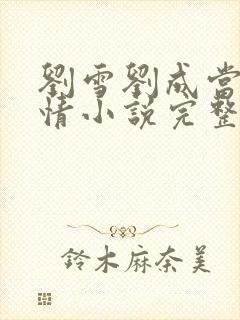 劉雪劉成當
情小說完整
鈴木麻奈美